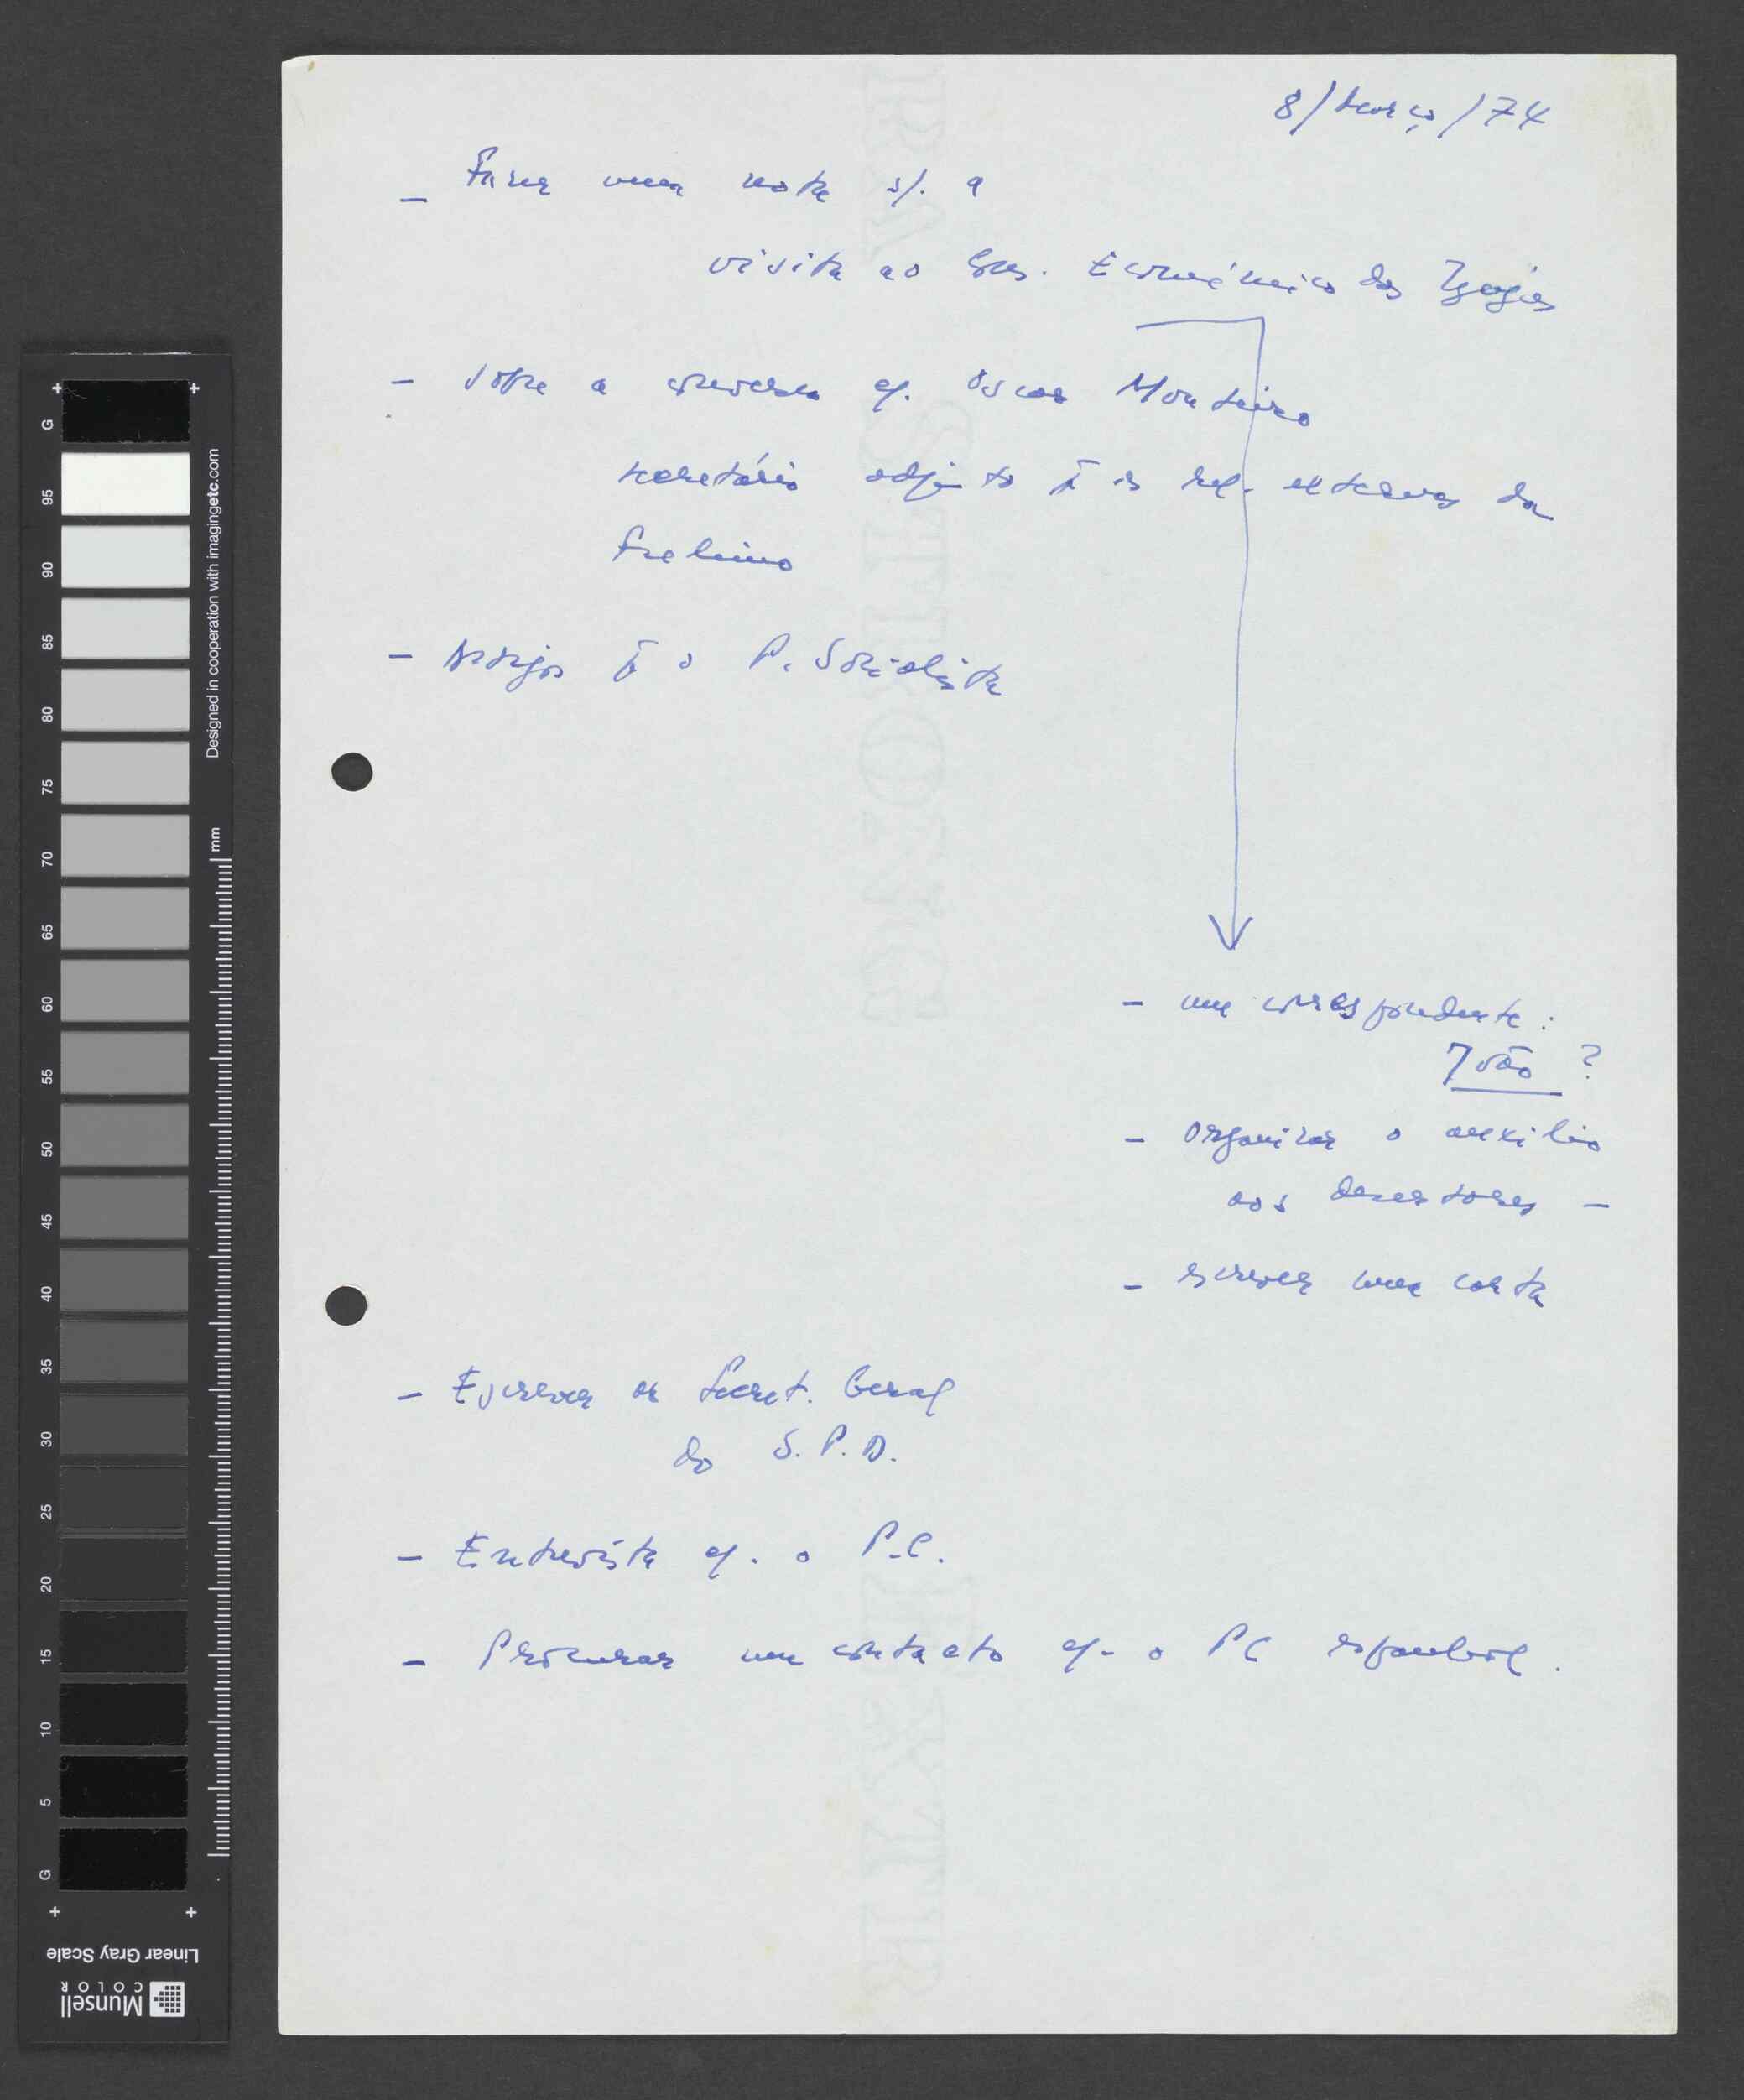 8/março/74
– Fazer uma nota s/. a
visita ao Cons. Económico das Igrejas
– sobre a conversa c/. Oscar Monteiro
secretário adjunto p̄ as rel. externas da
Frelimo
– artigos p̄ o P. Socialista
– um correspondente :
João ?
– organizar o auxílio
aos desertores –
– escrever uma carta
– Escrever ao Secret. Geral
do S.P.D.
– Entrevista c/. o P.C.
– Procurar um contacto c/. o PC espanhol.
G
95
90
85
80
75
70
65
60
55
50
45
40
35
30
25
20
15
10
5
G
Designed in cooperation with imagingetc.com
mm
Linear Gray Scale
Munsell
COLOR